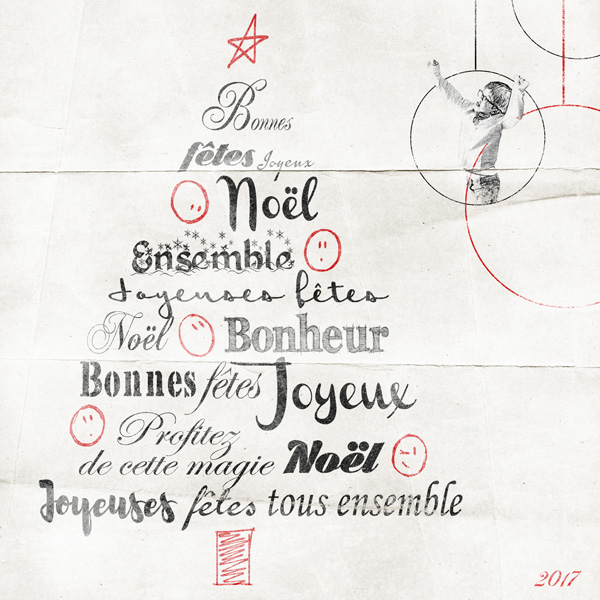 Bonnes
fêtes Joyeux
Noël
Ensemble
Joyeuses fêtes
Noël Bonheur
Bonnes fêtes Joyeux
Profitez
de cette magie Noël
Joyeuses fêtes tous ensemble
2017